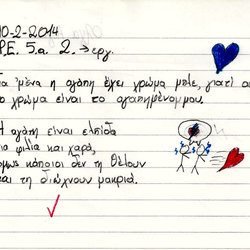 10-2-2014
P.E. 5.α 2. → εργ.
Για 'μένα η αγάπη έχει χρώμα μπλε, γιατί αυτό
το χρώμα είναι το αγαπημένο μου.
Η αγάπη είναι ελπίδα
για φιλία και χαρά,
όμως κάποιοι δεν τη θέλουν
και τη διώχνουν μακριά.